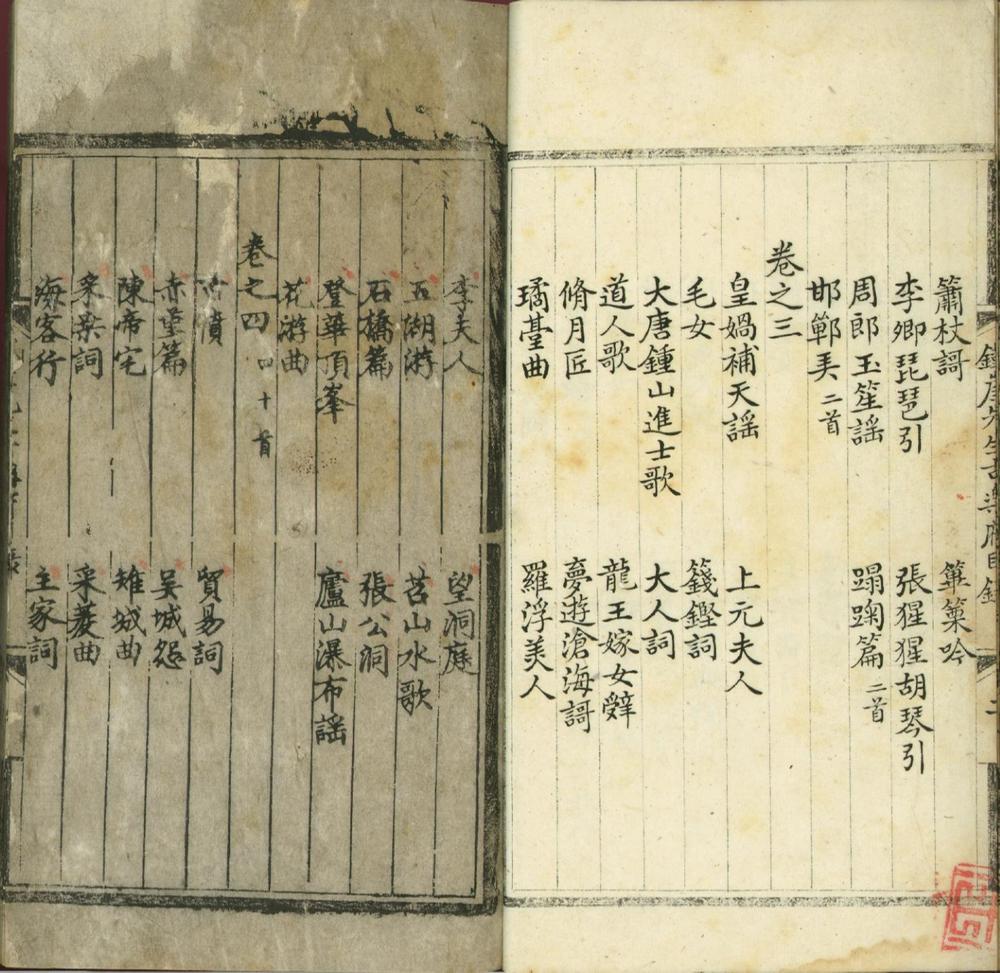 鐵厓先生古樂府目錄 二
簫杖謌 篳篥吟
李卿琵琶引 張猩猩胡琴引
周郎玉笙謡 蹋踘篇二首
邯鄲美二首
卷之三
皇媧補天謡 上元夫人
毛女 籛鏗詞
大唐鍾山進士歌 大人詞
道人歌 龍王嫁女辤
脩月匠 夢遊滄海謌
璚臺曲 羅浮美人
李夫人 望洞庭
五湖游 苕山水歌
石橋篇 張公洞
登華頂峯 廬山瀑布謡
花游曲
卷之四 四十首
憤 貿易詞
赤堇篇 吴城怨
陳帝宅 雉城曲
采桑詞 采菱曲
海客行 主家詞